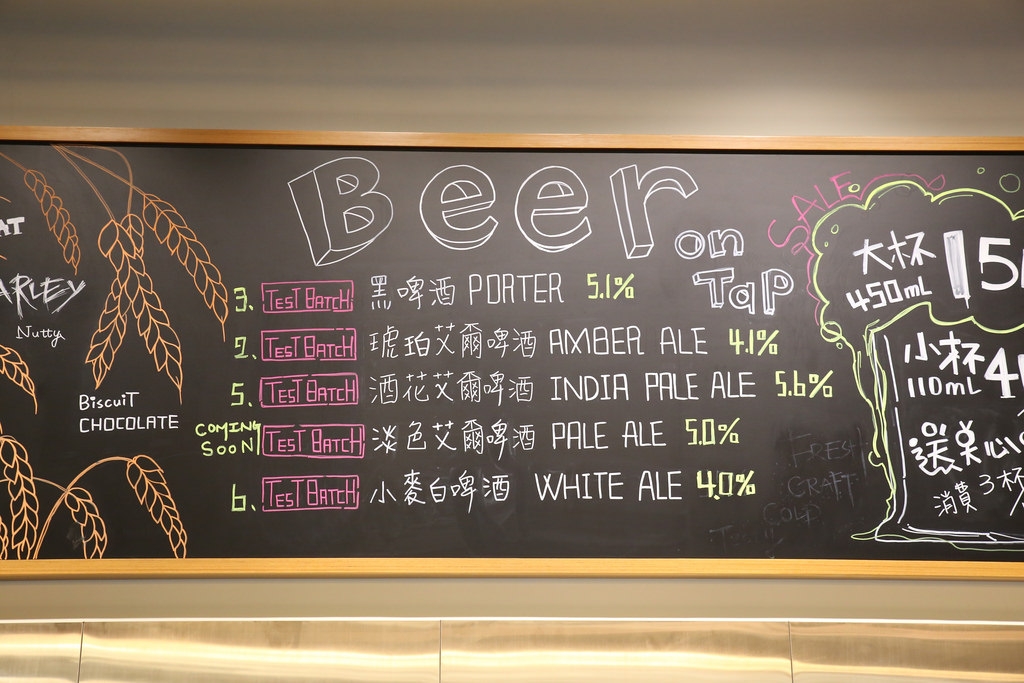 Beer
on
Tap
3. TEST BATCH 黑啤酒 PORTER 5.1%
2. TEST BATCH 琥珀艾爾啤酒 AMBER ALE 4.1%
5. TEST BATCH 酒花艾爾啤酒 INDIA PALE ALE 5.6%
COMING
SOON TEST BATCH 淡色艾爾啤酒 PALE ALE 5.0%
6. TEST BATCH 小麥白啤酒 WHITE ALE 4.0%
ARLEY
Nutty
BiscuiT
CHOCOLATE
SALE
大杯
450mL
小杯
110mL
送美心
消費3杯
FRESH
CRAFT
COLD